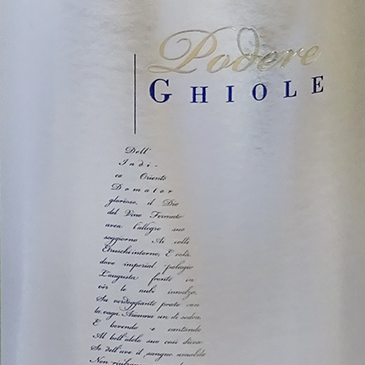 Podere
GHIOLE
Dell'
Indi-
co Oriente
Domator
glorioso, il Dio
del Vino Fermato
avea l'allegro suo
soggiorno Ai colli
Etruschi intorno, E colà
dove imperial palagio
L'augusta fronte in
vèr le nubi innalza,
Su verdeggiante prato con
la vaga Arianna un dì sedea,
E bevendo e cantando
Al bell'idolo suo così dicea
Se dell'uve il sangue amabile
Non